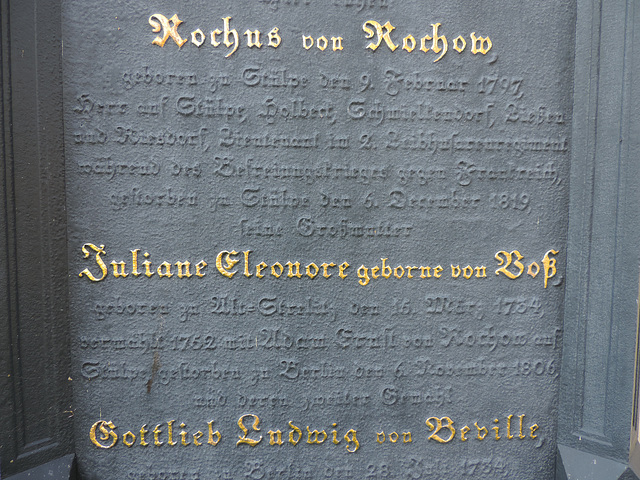 Hier ruhen
Rochus von Rochow,
geboren zu Stülpe den 9. Februar 1797,
Herr auf Stülpe, Holbeck, Schmielkendorf, Ließen
und Riesdorf, Lieutenant im 2. Leibhusarenregiment
während des Befreiungskrieges gegen Frankreich,
gestorben zu Stülpe den 6. December 1819,
seine Großmutter
Juliane Eleonore geborne von Voß,
geboren zu Alt-Strelitz, den 16. März 1734,
vermählt 1752 mit Adam Ernst von Rochow auf
Stülpe, gestorben zu Berlin, den 6. November 1806
und deren zweiter Gemahl
Gottlieb Ludwig von Beville,
geboren zu Berlin den 28. 1734,